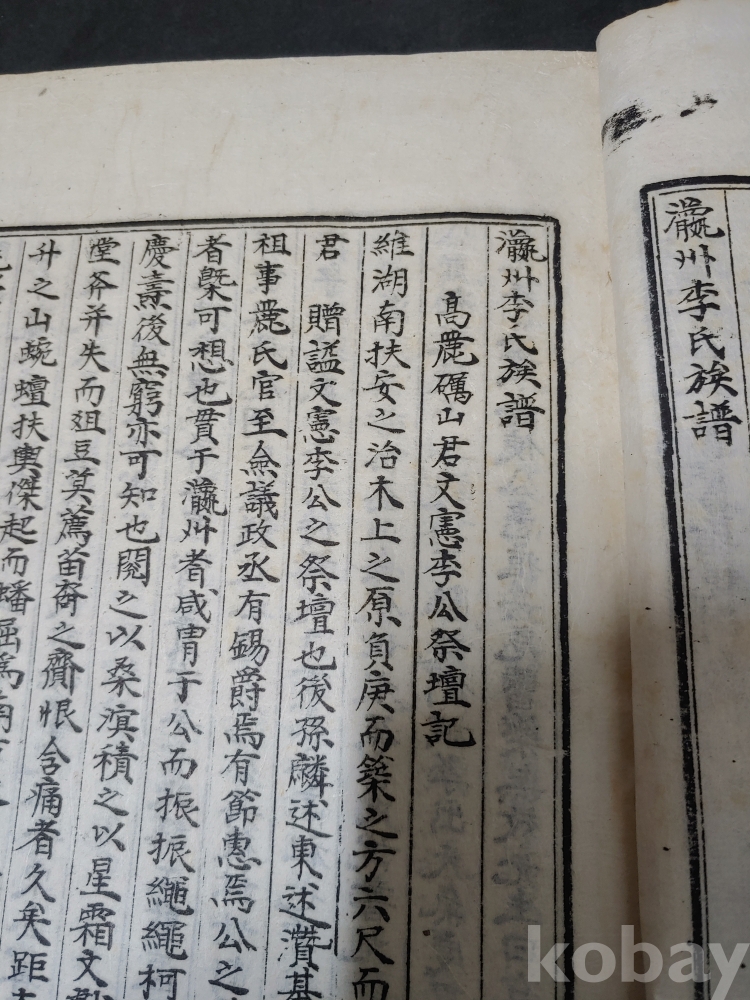 瀛州李氏族譜
瀛州李氏族譜
高麗礪山君文憲李公祭壇記
維湖南扶安之治木上之原負庚而築之方六尺而
君 贈諡文憲李公之祭壇也後孫麟述東述瓚基
祖事麗氏官至僉議政丞有錫爵焉有節惠焉公之
者槩可想也貫于瀛州者咸胄于公而振振繩繩柯
慶燾後無窮亦可知也閱之以桑溟積之以星霜文
堂斧并失而俎豆莫薦苗裔之齎恨含痛者久矣距
升之山蜿蟺扶輿傑起而蟠屈爲
kobay